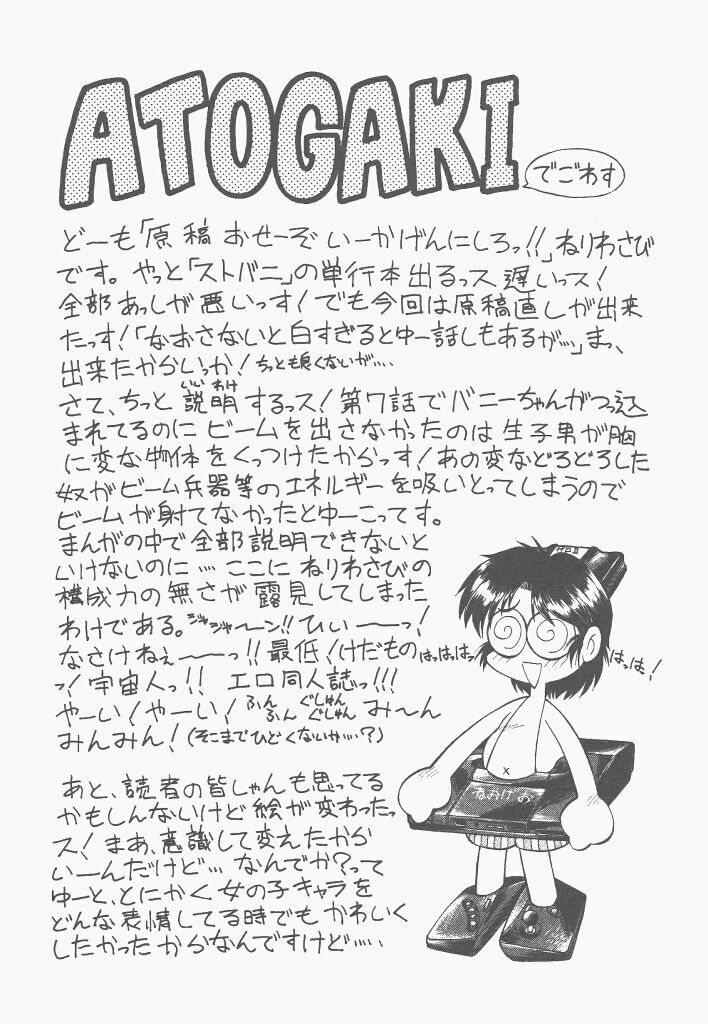 ATOGAKI
でごわす
どーも「原稿おせーぞ いーかげんにしろっ!!」ねりわさび
です。やっと「ストバニ」の単行本出るっス 遅いっス!
全部あっしが悪いっす!でも今回は原稿直しが出来
たっす!「なおさないと白すぎるとゆー話しもあるが…」まっ、
出来たからいっか!ちっとも良くないが….
さて、ちっと 説明するっス!第7話でバニーちゃんがつっ込
いいわけ
まれてるのに ビームを出さなかったのは 生子男が胸
に変な物体をくっつけたからっす!あの変などろどろした
奴がビーム兵器等のエネルギーを吸いとってしまうので
ビームが射てなかったとゆーこってす。
まんがの中で全部説明できないと
いけないのに … ここに ねりわさびの
構成力の無さが 露見してしまった
わけである。ジャジャ〜ーン!!ひぃー〜っ!
なさけねぇ〜ーっ!!最低!けだもの
っ!宇宙人っ!! エロ同人誌っ!!!
やーい!やーい!ふん ふん ぐしゅん ぐしゅん み〜ん
みんみん!(そこまでひどくないか…?)
はっはっはっ
はっは!
あと、読者の皆しゃんも思ってる
かもしんないけど 絵が変わったっ
ス!まあ、意識して変えたから
いーんだけど… なんでか?って
ゆーと、とにかく女の子キャラを
どんな表情してる時でもかわいく
したかったからなんですけど…..